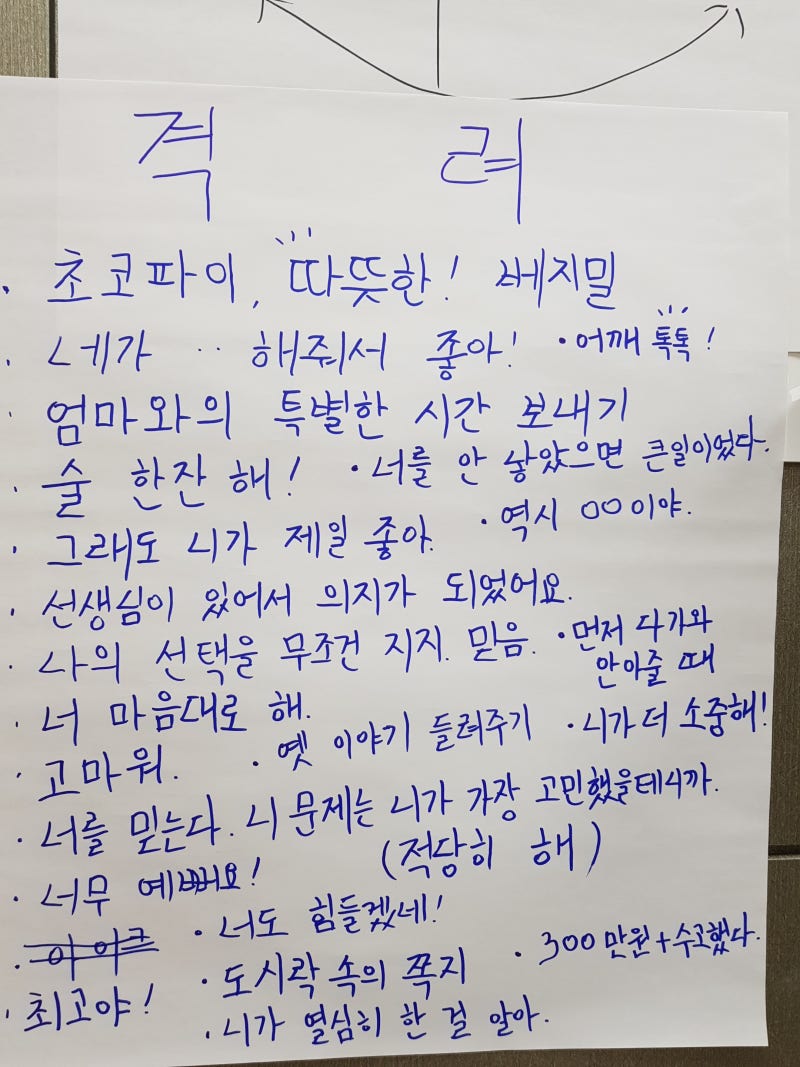 격 려
· 초코파이, 따뜻한! 베지밀
· 네가 ·· 해줘서 좋아! · 어깨 톡톡!
· 엄마와의 특별한 시간 보내기
· 술 한잔 해! · 너를 안 낳았으면 큰일이었다.
· 그래도 니가 제일 좋아. · 역시 ○○이야.
· 선생님이 있어서 의지가 되었어요.
· 나의 선택을 무조건 지지. 믿음. · 먼저 다가와
안아줄 때
· 너 마음대로 해.
· 고마워. · 옛 이야기 들려주기 · 니가 더 소중해!
· 너를 믿는다. 니 문제는 니가 가장 고민했을테니까.
· 너무 예뻐요! (적당히 해)
· 너도 힘들겠네!
· 최고야! · 도시락 속의 쪽지 · 300만원+수고했다.
· 니가 열심히 한 걸 알아.